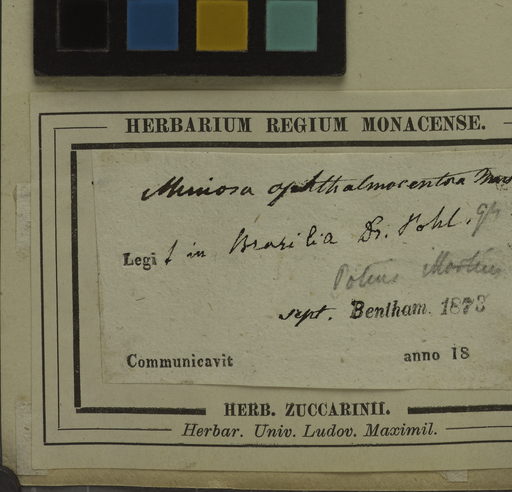 HERBARIUM REGIUM MONACENSE.
Mimosa ophthalmocentra Mart
Legit in Brasilia Dr. Pohl.
Potius Martius
sept. Bentham. 1873
Communicavit anno 18
HERB. ZUCCARINII.
Herbar. Univ. Ludov. Maximil.